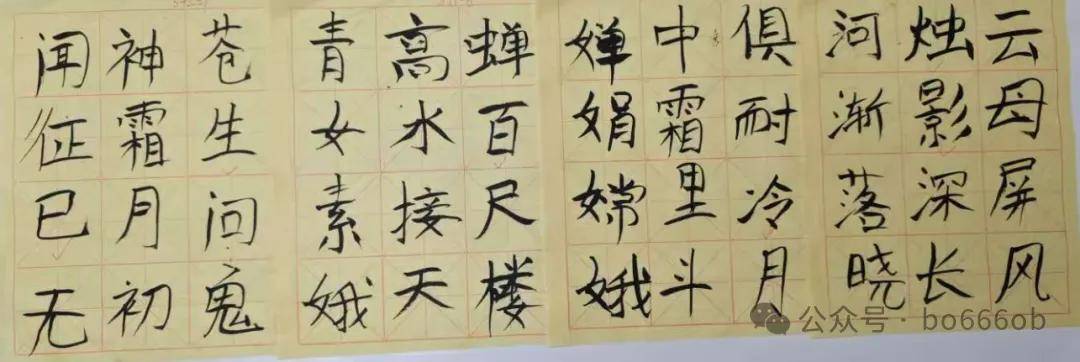 苍生问鬼
神霜月初
闻征已无
蝉百尺楼
高水接天
青女素娥
俱耐冷月
中霜里斗
婵娟嫦娥
云母屏风
烛影深长
河渐落晓
公众号 · bo666ob